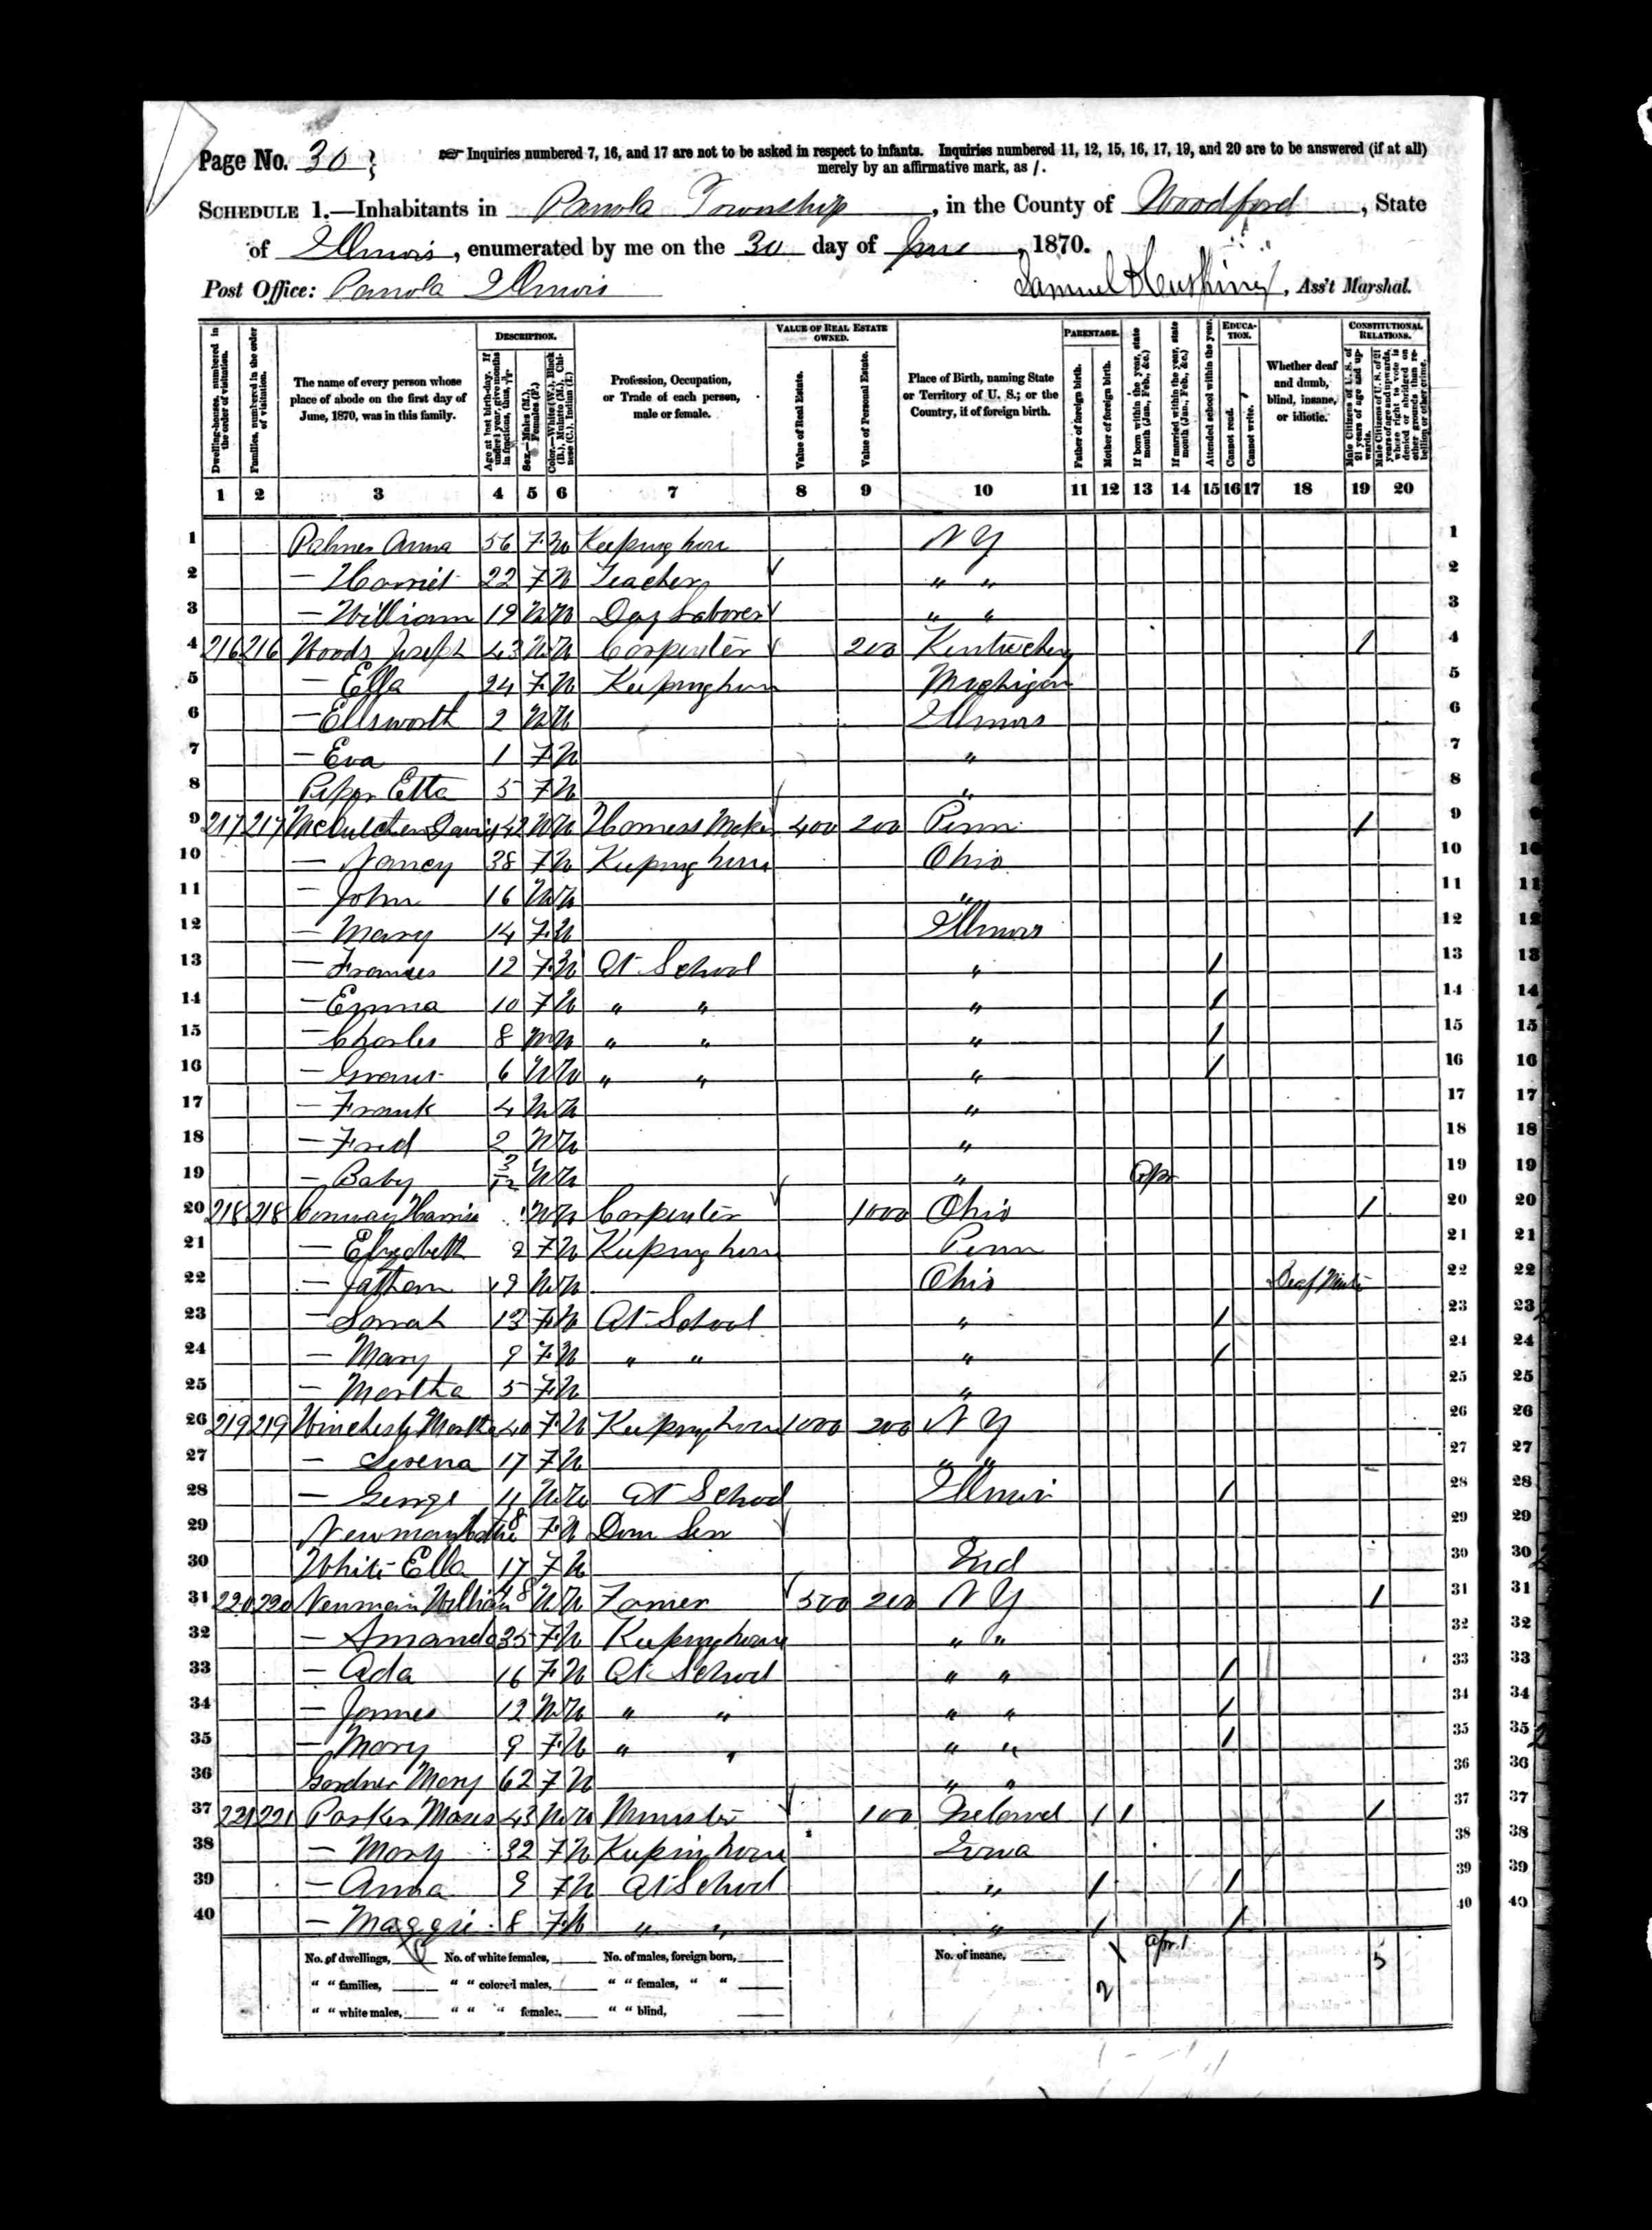 Page No. 30
☞ Inquiries numbered 7, 16, and 17 are not to be asked in respect to infants. Inquiries numbered 11, 12, 15, 16, 17, 19, and 20 are to be answered (if at all)
merely by an affirmative mark, as /.
SCHEDULE 1.—Inhabitants in Panola Township, in the County of Woodford, State
of Illinois, enumerated by me on the 30 day of June, 1870.
Post Office: Panola Illinois Samuel, Ass't Marshal.
Dwelling-houses, numbered in the order of visitation.
Families, numbered in the order of visitation.
The name of every person whose place of abode on the first day of June, 1870, was in this family.
DESCRIPTION.
Age at last birth-day. If under 1 year, give months in fractions, thus,
Sex.—Males (M.), Females (F.)
Color.—White (W.), Black (B.), Mulatto (M.), Chinese (C.), Indian (I.)
Profession, Occupation, or Trade of each person, male or female.
VALUE OF REAL ESTATE OWNED.
Value of Real Estate.
Value of Personal Estate.
Place of Birth, naming State or Territory of U. S.; or the Country, if of foreign birth.
PARENTAGE.
Father of foreign birth.
Mother of foreign birth.
If born within the year, state month (Jan., Feb., &c.)
If married within the year, state month (Jan., Feb., &c.)
Attended school within the year.
EDUCATION.
Cannot read.
Cannot write.
Whether deaf and dumb, blind, insane, or idiotic.
CONSTITUTIONAL RELATIONS.
Male Citizens of U. S. of 21 years of age and upwards.
Male Citizens of U. S. of 21 years of age and upwards, whose right to vote is denied or abridged on other grounds than rebellion or other crime.
1 2 3 4 5 6 7 8 9 10 11 12 13 14 15 16 17 18 19 20
1 Palmer Anna 56 F W Keeping house N Y 1
2 — Harriet 22 F W Teacher " " 2
3 — William 19 M W Day Laborer " " 3
4 216 216 Woods Joseph 43 M W Carpenter 200 Kentuckey / 4
5 — Ella 24 F W Keeping hous Michigan 5
6 — Ellsworth 2 M W Illinois 6
7 — Eva 1 F W " 7
8 Etta 5 F W " 8
9 217 217 42 M W Harness Maker 400 200 Penn / 9
10 — Nancy 38 F W Keeping house Ohio 10
11 — John 16 M W " 11
12 — Mary 14 F W Illinois 12
13 — Frances 12 F W At School " / 13
14 — Emma 10 F W " " " / 14
15 — Charles 8 M W " " " / 15
16 — Grant 6 M W " " " / 16
17 — Frank 4 M W " 17
18 — Fred 2 M W " 18
19 — Baby 3/12 M W " Apr 19
20 218 218 Conway M W Carpenter 1000 Ohio / 20
21 — Elizabeth F W Keeping house Penn 21
22 — M W Ohio Deaf Mute 22
23 — Sarah 13 F W At School " / 23
24 — Mary 9 F W " " " / 24
25 — Martha 5 F W " 25
26 219 219 Martha 40 F W Keeping house 1000 200 N Y 26
27 — Serena 17 F W " " 27
28 — George 11 M W At School Illinois / 28
29 Newman 18 F W Dom Ser 29
30 White Ella 17 F W Ind 30
31 220 220 Newman William 48 M W Farmer 500 200 N Y / 31
32 — Amanda 35 F W Keeping house " " 32
33 — Ada 16 F W At School " " / 33
34 — James 12 M W " " " " / 34
35 — Mary 9 F W " " " " / 35
36 Gardner Mary 62 F W " " 36
37 221 221 Parker Moses 43 M W Minister 100 Ireland / / / 37
38 — Mary 32 F W Keeping house Iowa 38
39 — Anna 9 F W At School " / / 39
40 — Maggie 8 F W " " " / / 40
No. of dwellings, No. of white females, No. of males, foreign born, No. of insane, 2 1 Apr. 1 5
" " families, " " colored males, " " females, " "
" " white males, " " " females, " " blind,
10
11
12
13
14
15
16
17
18
19
20
21
22
23
24
25
26
27
28
29
30
31
32
33
34
35
36
37
38
39
40